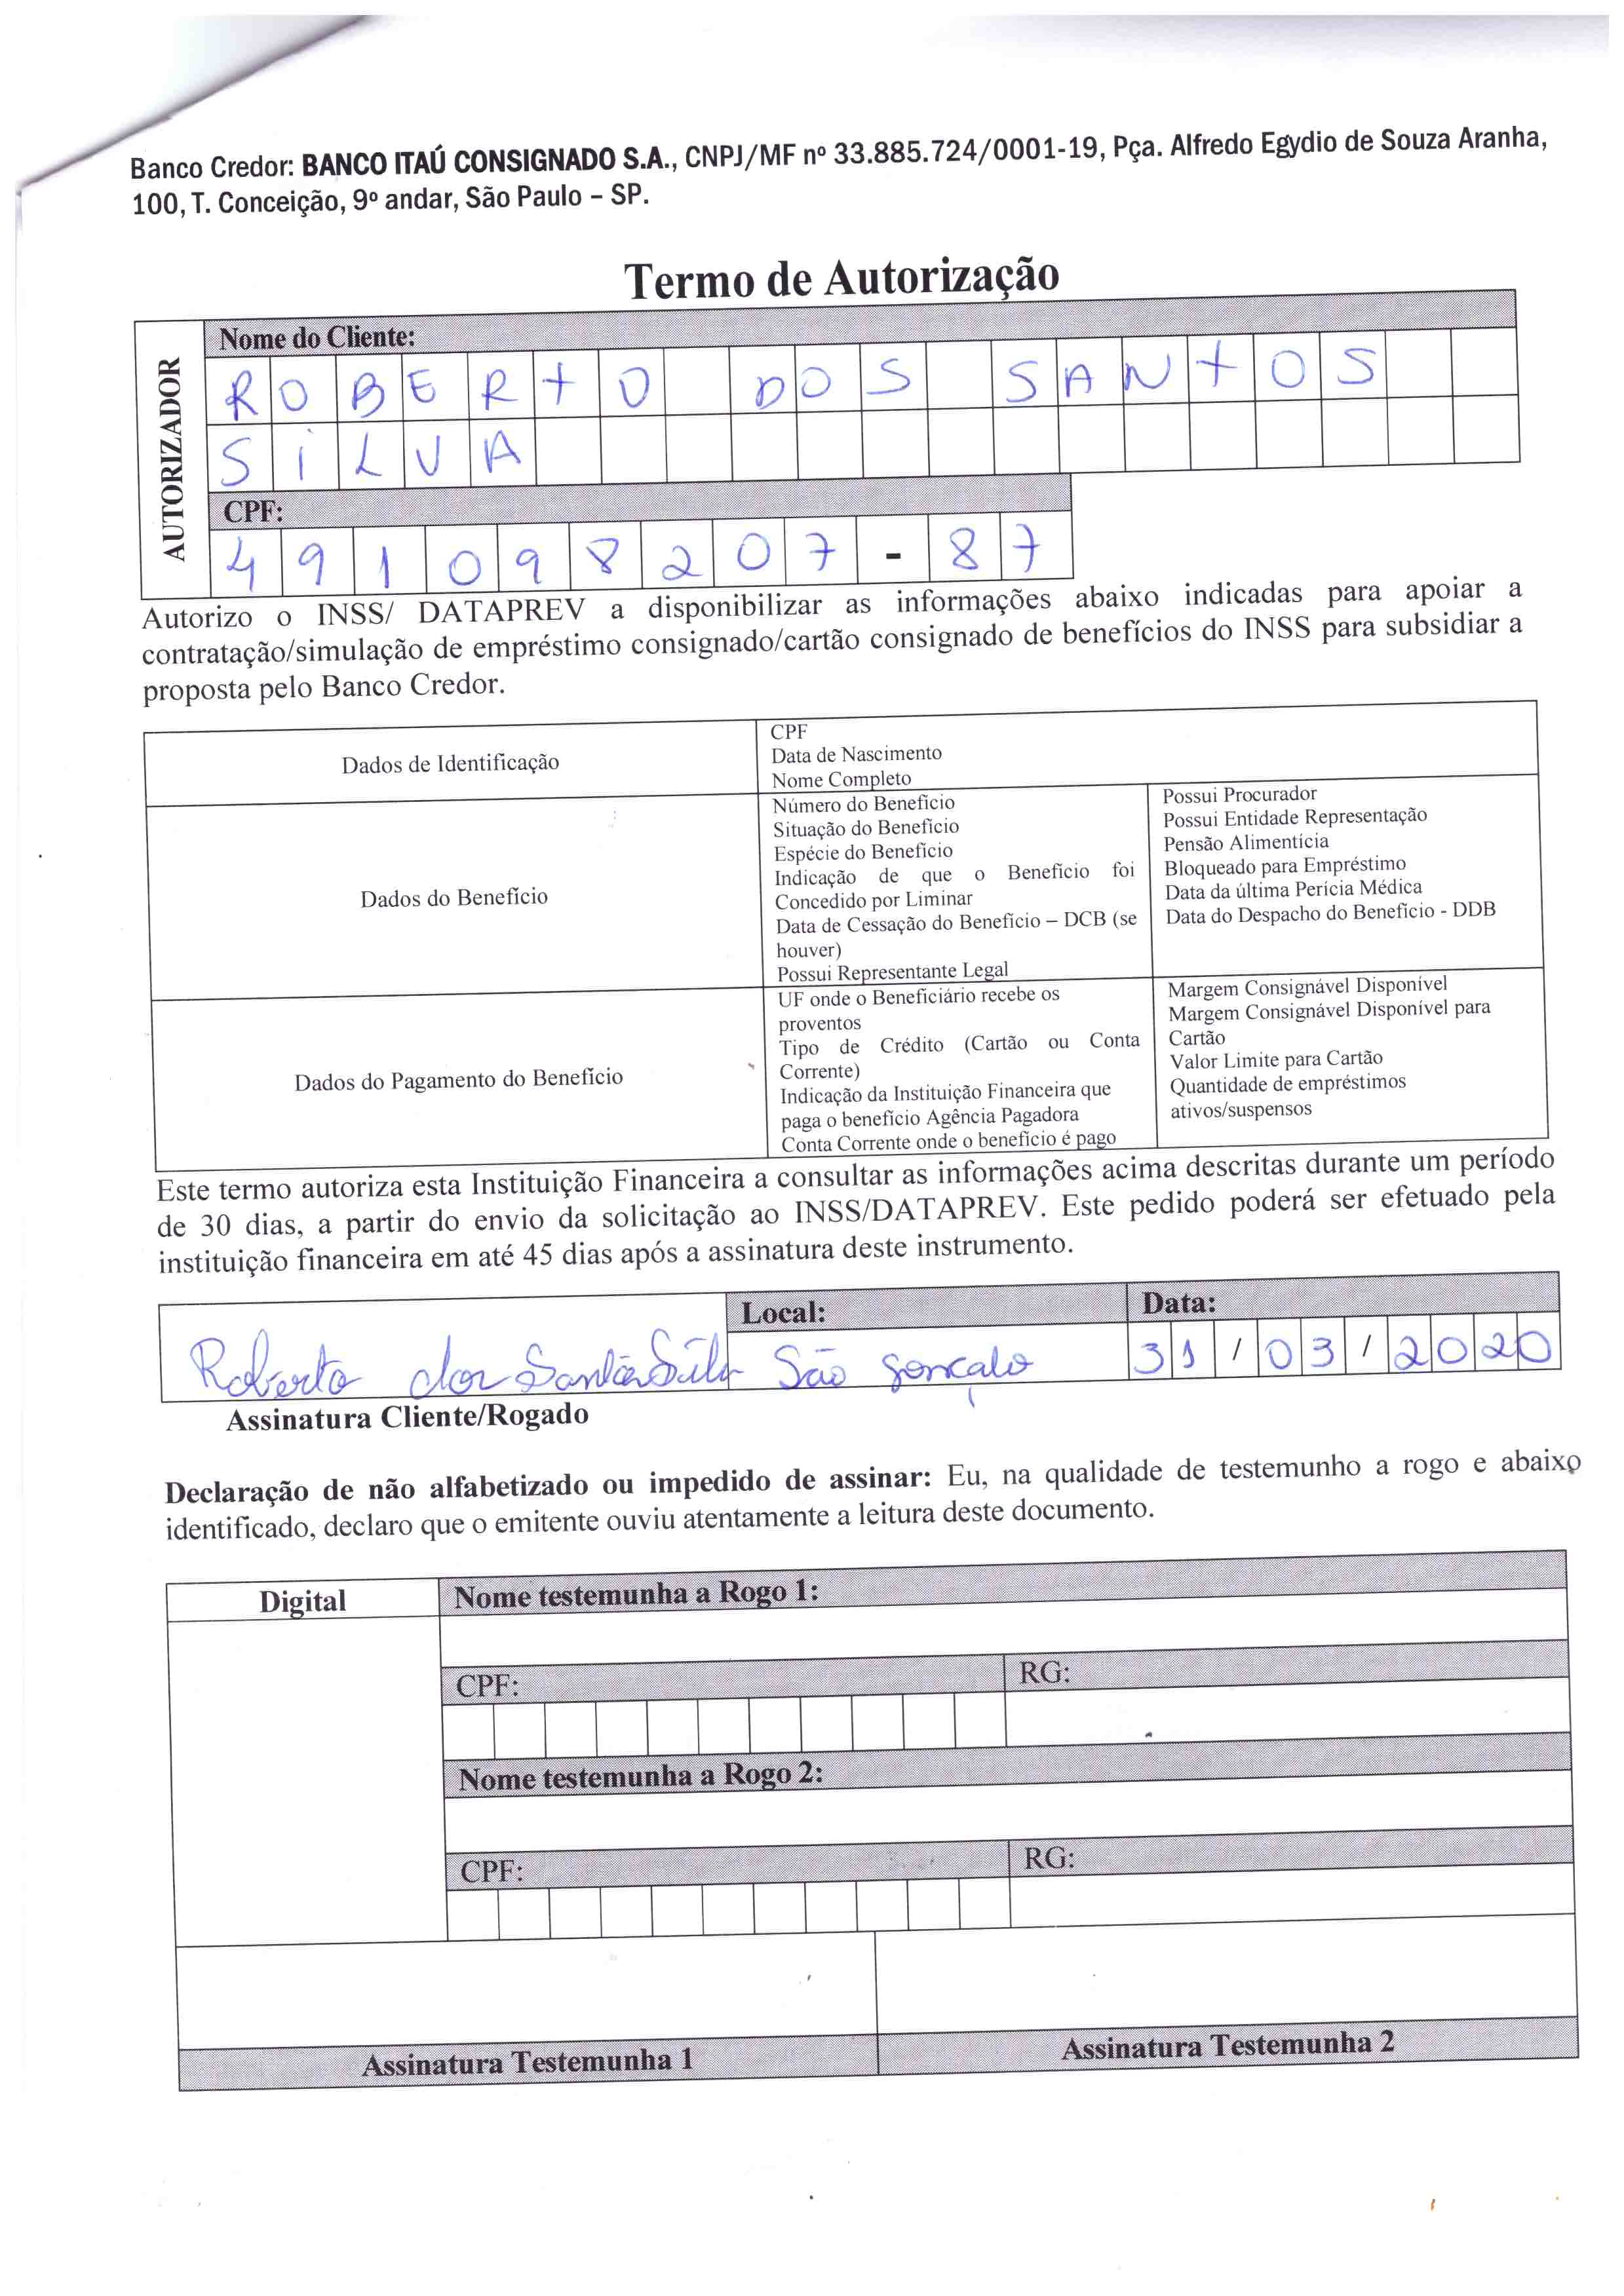 Banco Credor: BANCO ITAÚ CONSIGNADO S.A., CNPJ/MF nº 33.885.724/0001-19, Pça. Alfredo Egydio de Souza Aranha,
100, T. Conceição, 9º andar, São Paulo – SP.
Termo de Autorização
AUTORIZADOR
Nome do Cliente:
ROBERTO DOS SANTOS
SILVA
CPF:
491098207-87
Autorizo o INSS/ DATAPREV a disponibilizar as informações abaixo indicadas para apoiar a
contratação/simulação de empréstimo consignado/cartão consignado de benefícios do INSS para subsidiar a
proposta pelo Banco Credor.
Dados de Identificação
CPF
Data de Nascimento
Nome Completo
Dados do Benefício
Número do Benefício
Situação do Benefício
Espécie do Benefício
Indicação de que o Benefício foi
Concedido por Liminar
Data de Cessação do Benefício – DCB (se
houver)
Possui Representante Legal
Possui Procurador
Possui Entidade Representação
Pensão Alimentícia
Bloqueado para Empréstimo
Data da última Perícia Médica
Data do Despacho do Benefício - DDB
Dados do Pagamento do Benefício
UF onde o Beneficiário recebe os
proventos
Tipo de Crédito (Cartão ou Conta
Corrente)
Indicação da Instituição Financeira que
paga o benefício Agência Pagadora
Conta Corrente onde o benefício é pago
Margem Consignável Disponível
Margem Consignável Disponível para
Cartão
Valor Limite para Cartão
Quantidade de empréstimos
ativos/suspensos
Este termo autoriza esta Instituição Financeira a consultar as informações acima descritas durante um período
de 30 dias, a partir do envio da solicitação ao INSS/DATAPREV. Este pedido poderá ser efetuado pela
instituição financeira em até 45 dias após a assinatura deste instrumento.
Local: Data:
Roberto dos Santos Silva São Gonçalo 31/03/2020
Assinatura Cliente/Rogado
Declaração de não alfabetizado ou impedido de assinar: Eu, na qualidade de testemunho a rogo e abaixo
identificado, declaro que o emitente ouviu atentamente a leitura deste documento.
Digital
Nome testemunha a Rogo 1:
CPF: RG:
Nome testemunha a Rogo 2:
CPF: RG:
Assinatura Testemunha 1
Assinatura Testemunha 2